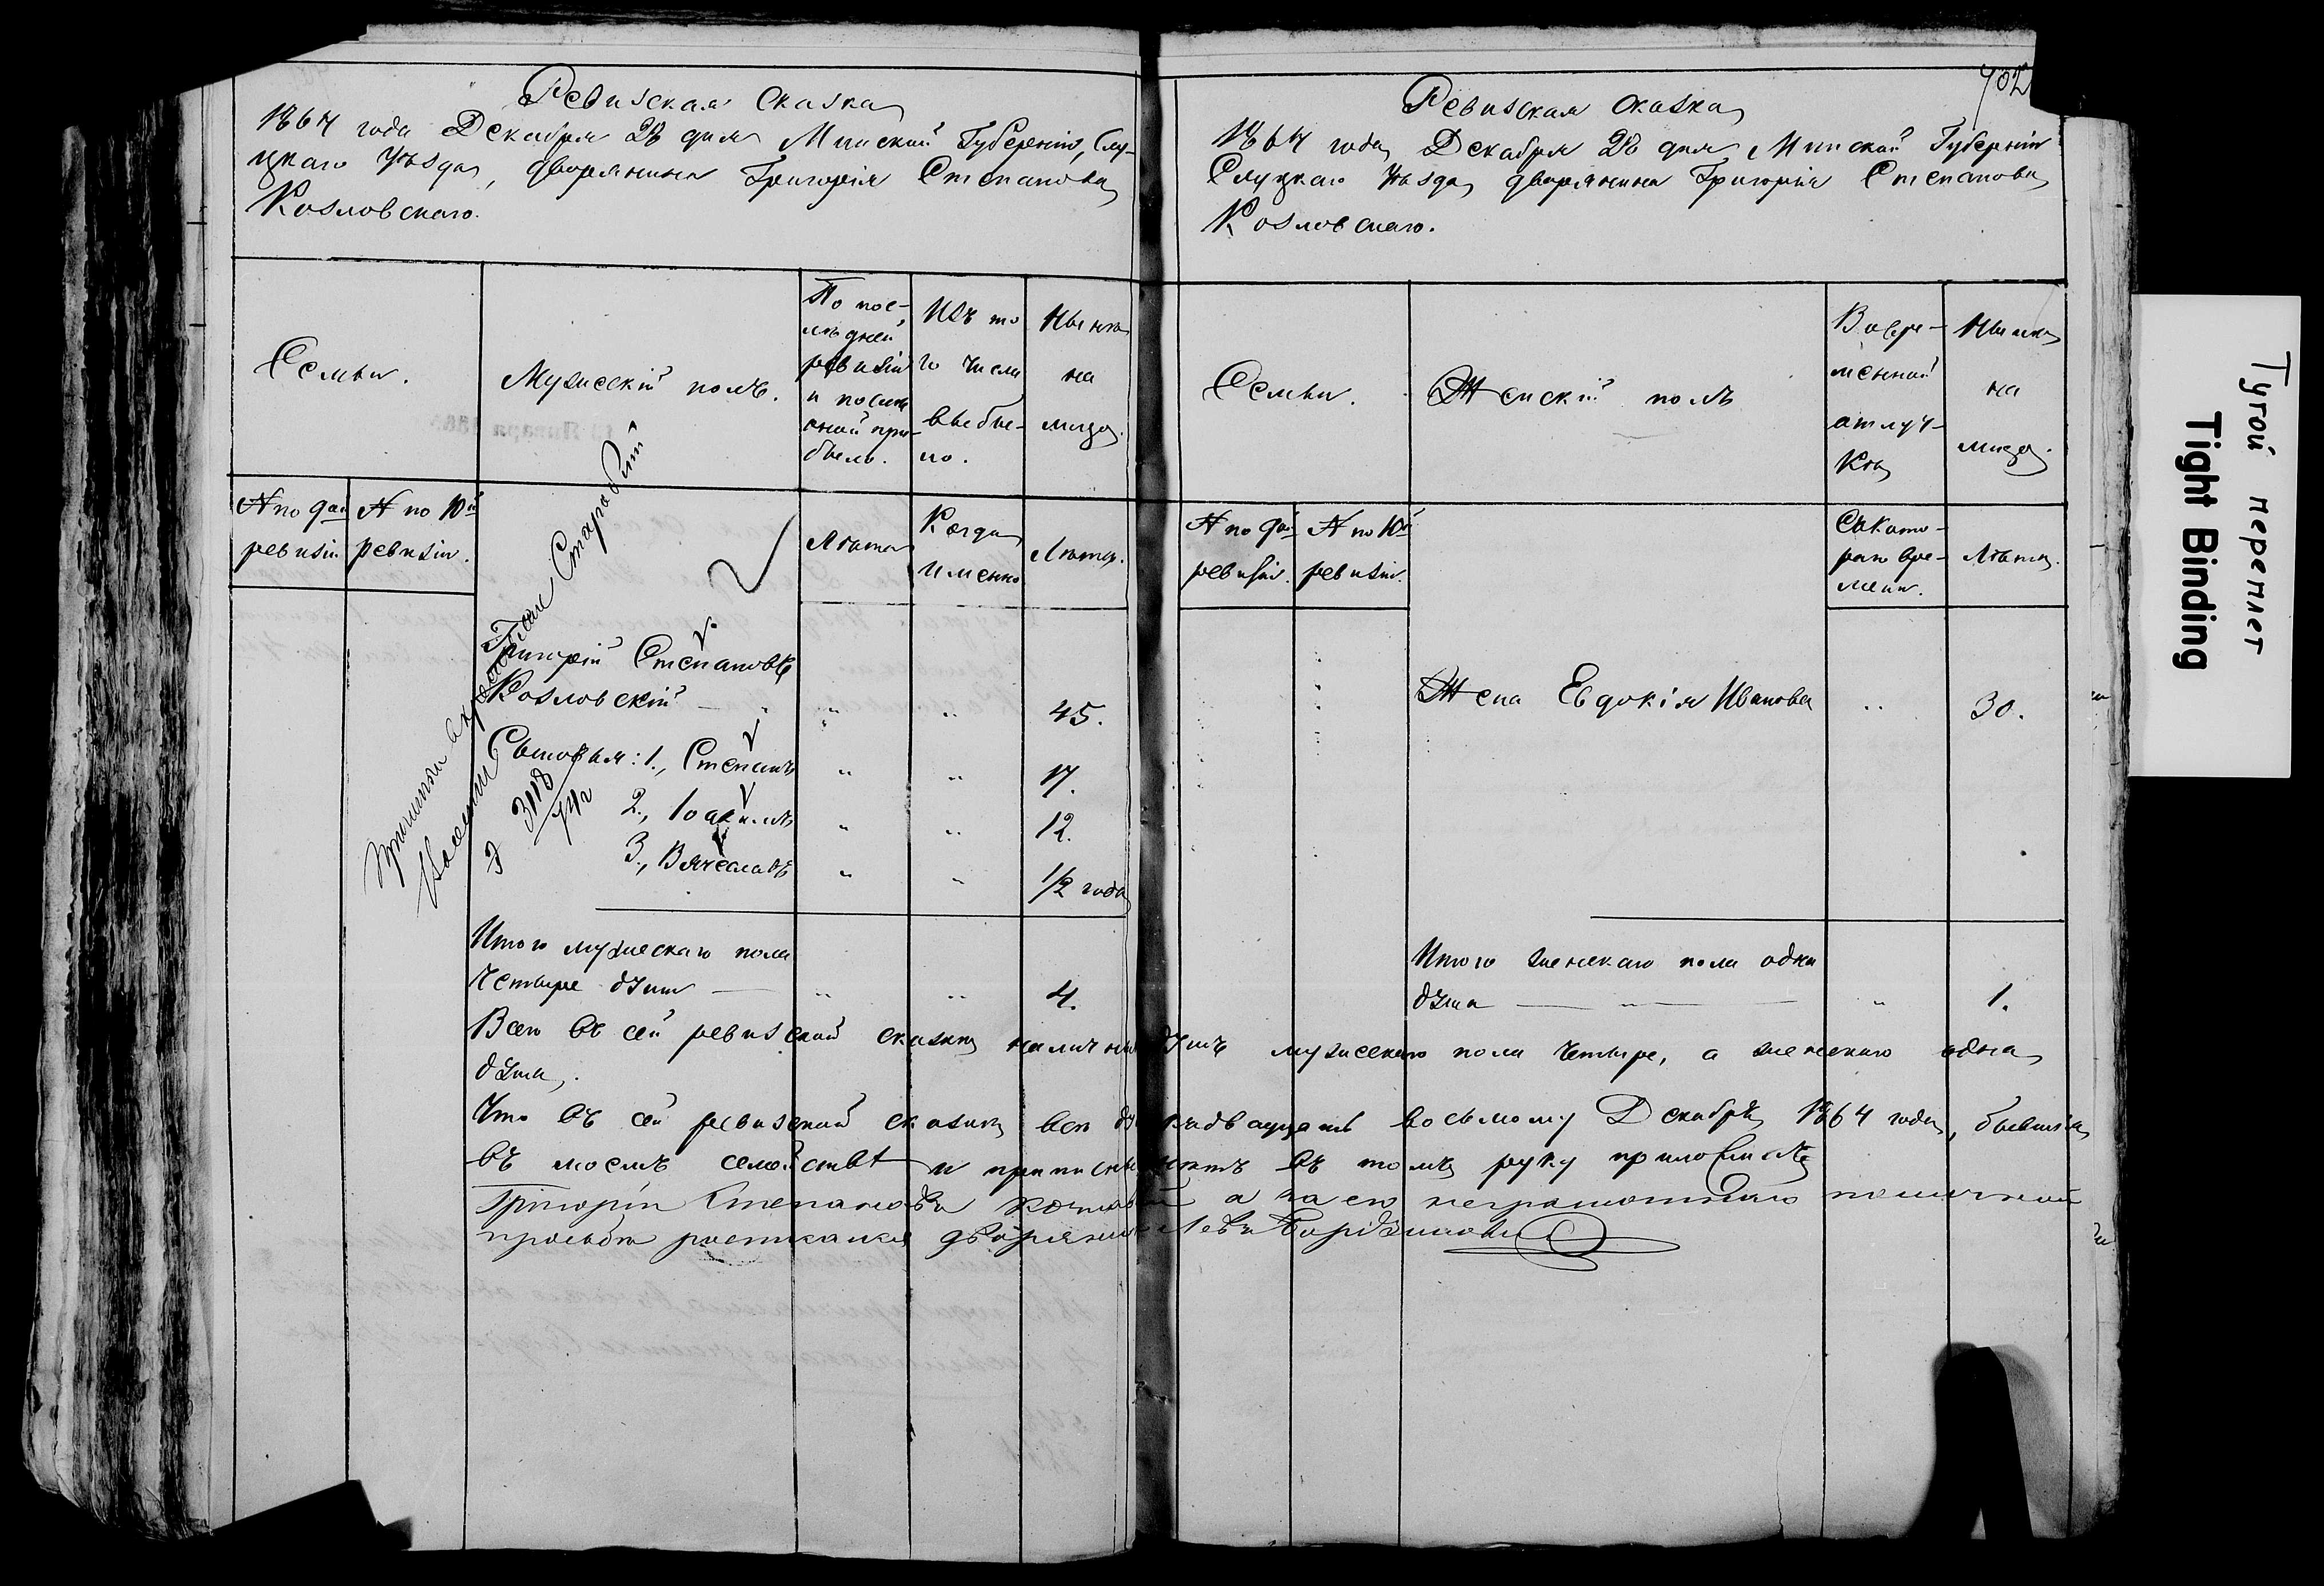 Ревизская Сказка
1864 года Декабря 28 дня Минской Губерніи, Слу-
цкаго Уѣзда, дворянина Григорія Степанова
Козловскаго.
Семьи.
Мужескій полъ.
По пос-
лѣдней
ревизіи
и послѣ
оной при-
было.
Изъ то
го числа
выбы-
ло.
Нынѣ
на
лицо.
№ по 9ой
ревизіи
№ по 10й
ревизіи.
Лѣта
Когда
именно
Лѣта.
Григорій Степановъ
Козловскій — „ „ „ 45.
Сыновья: 1., Степанъ „ „ 17.
2., Іоакимъ „ „ 12.
3., Вячеславъ „ „ 1/2 года
Итого мужескаго пола
четыре душъ — „ „ 4.
702
Ревизская сказка
1864 года Декабря 28 дня Минской Губерніи
Слуцкаго Уѣзда дворянина Григорія Степанова
Козловскаго.
Семьи.
Женскій полъ
Во вре-
менной
отлуч-
кѣ
Нынѣ
на
лицо.
№ по 9ой
ревизіи.
№ по 10й
ревизіи.
Съ кото-
раго вре-
мени.
Лѣта.
Жена Евдокія Иванова „ 30.
Итого женскаго пола одна
душа — „ — „ 1.
Всего въ сей ревизской сказкѣ наличныхъ душъ мужескаго пола четыре, а женскаго одна
душа.
Что въ сей ревизской сказкѣ всѣ къ двадцать восьмому Декабря 1864 года, бывшія
въ моемъ семействѣ и приписаны въ томъ руку приложилъ
Григорій Степановъ а за его неграмотнаго по личной
просьбѣ росписался дворянинъ Левъ
Тугой переплет
Tight Binding